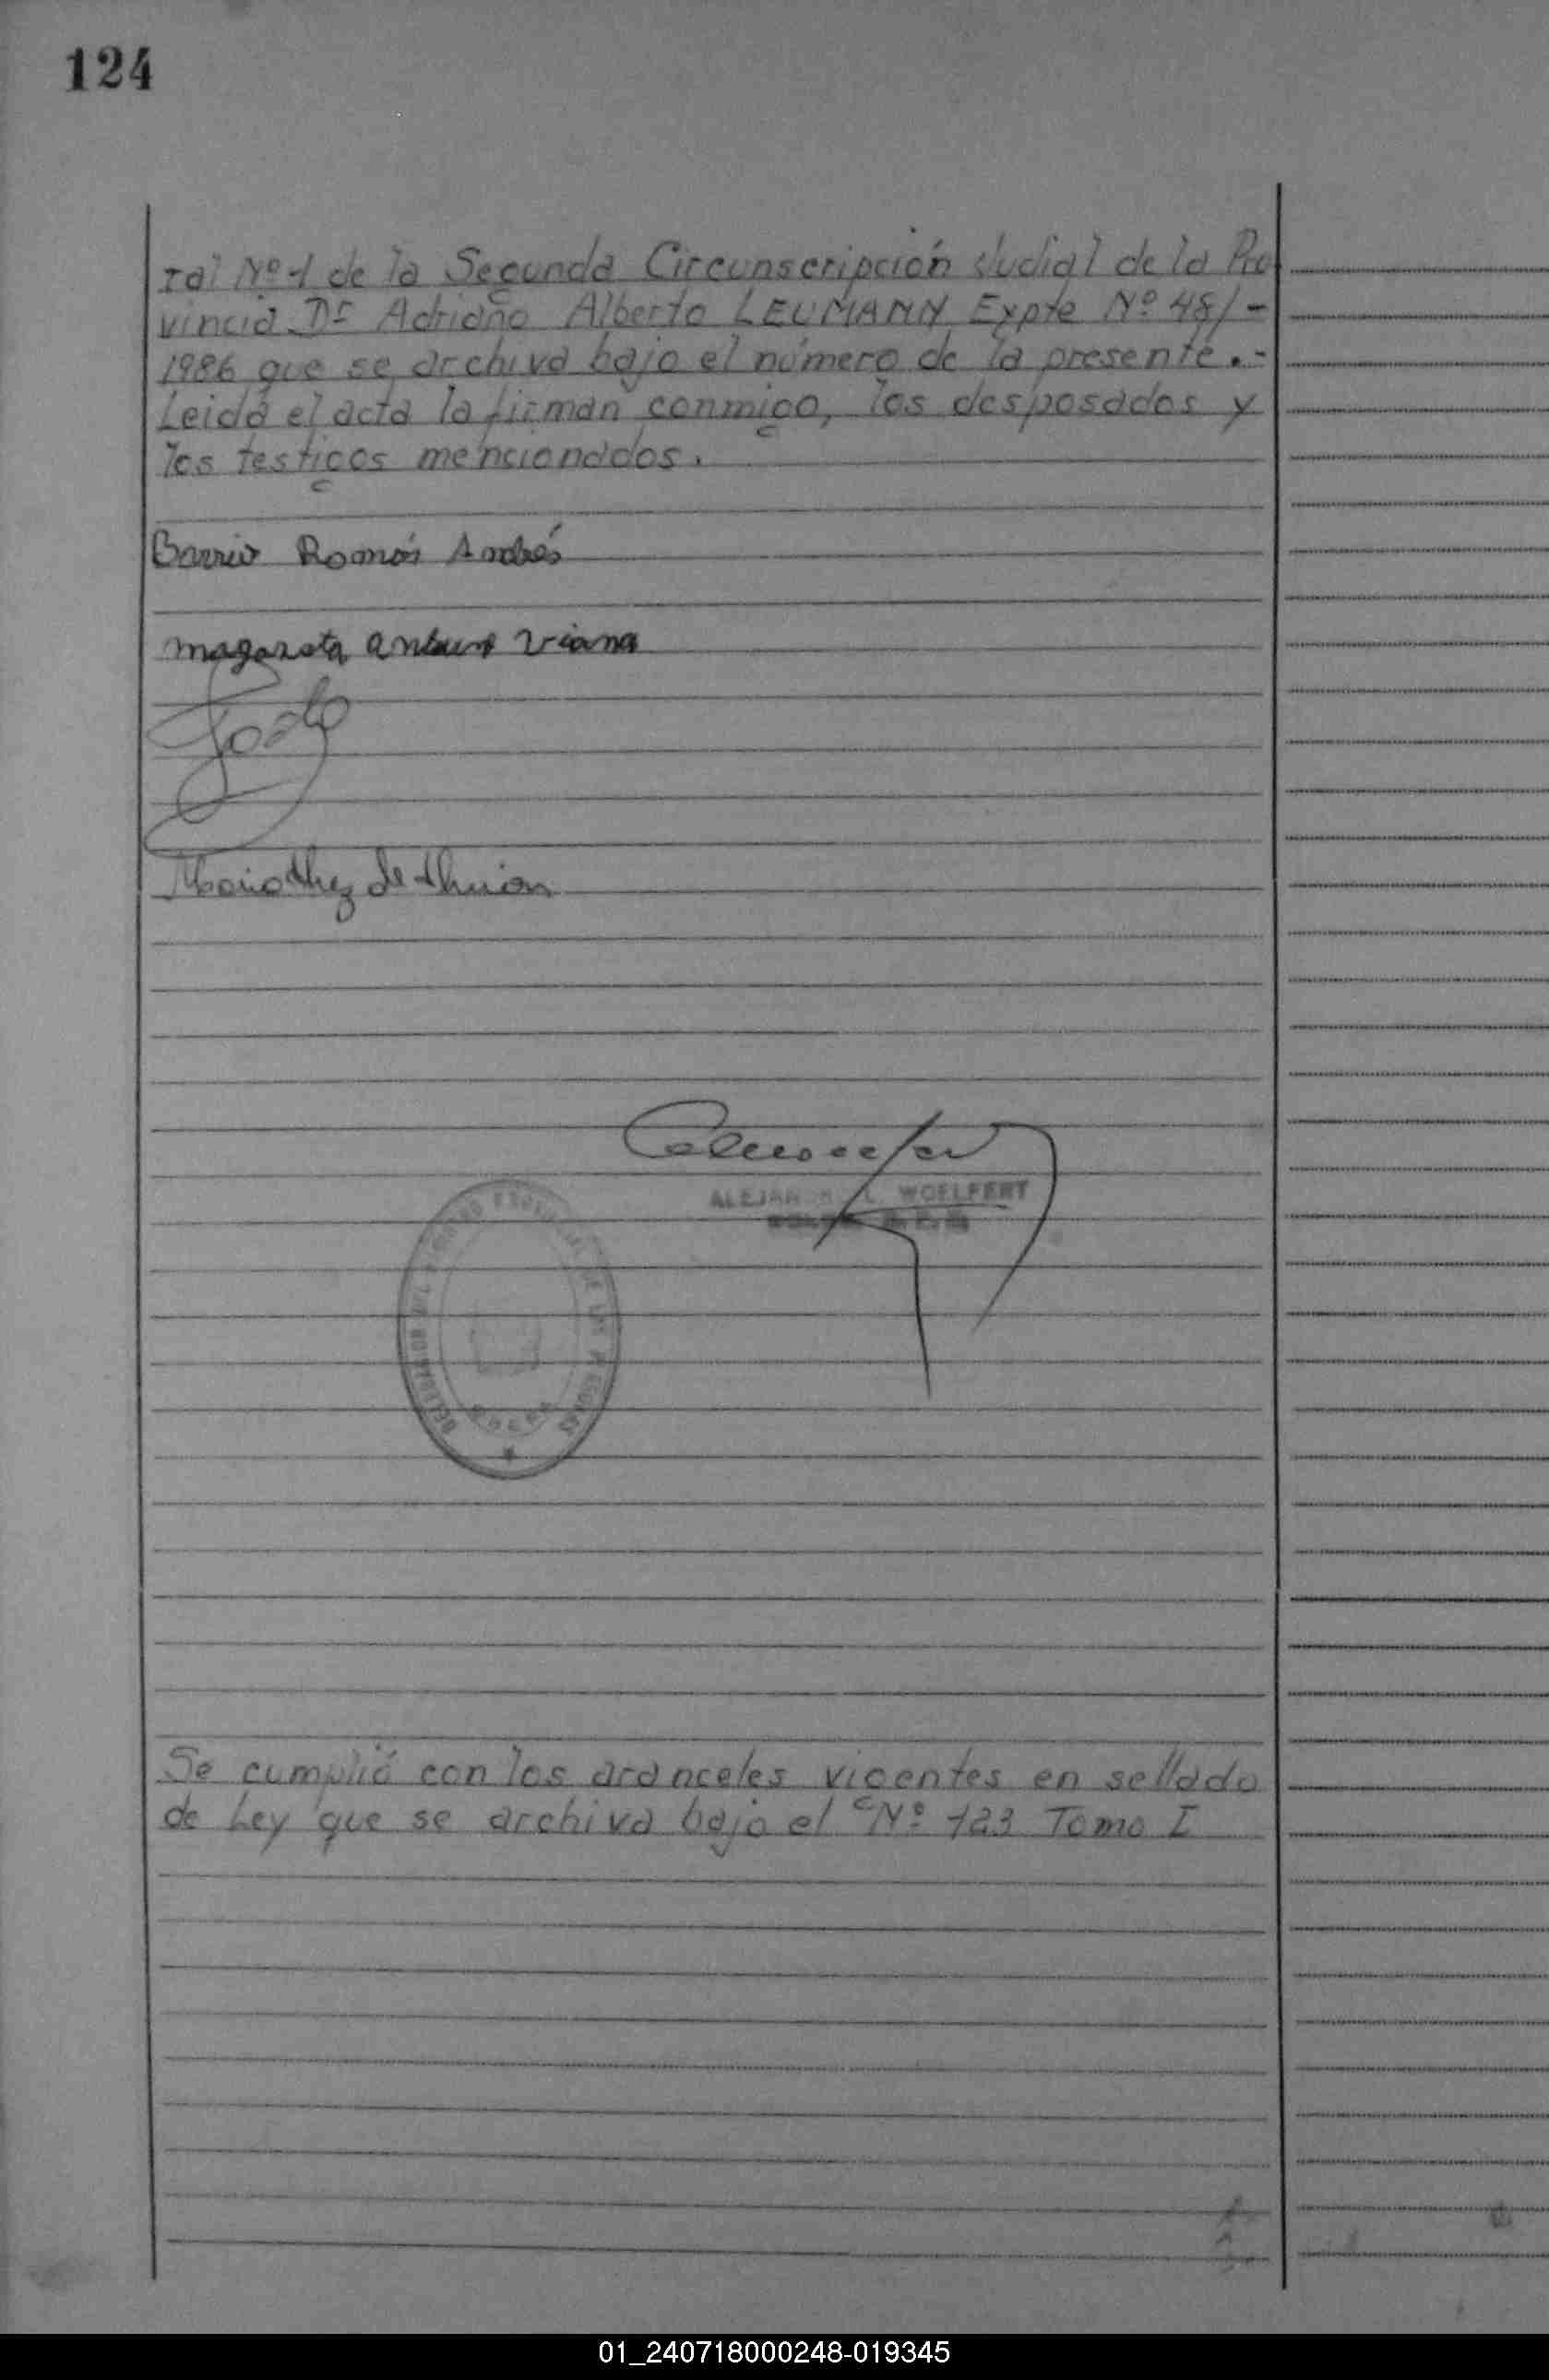 124
ral Nº 1 de la Segunda Circunscripción Judial de la Pro
vincia Dr Adriano Alberto LEUMANN Expte Nº 48/-
1986 que se archiva bajo el número de la presente.-
Leida el acta la firman conmigo, los desposados y
los testigos mencionados.
Barrio Román Andrés
magarota Viana
de
ALEJANDRO L. WOELFERT
Se cumplió con los aranceles vigentes en sellado
de Ley que se archiva bajo el Nº 123 Tomo I
01_240718000248-019345